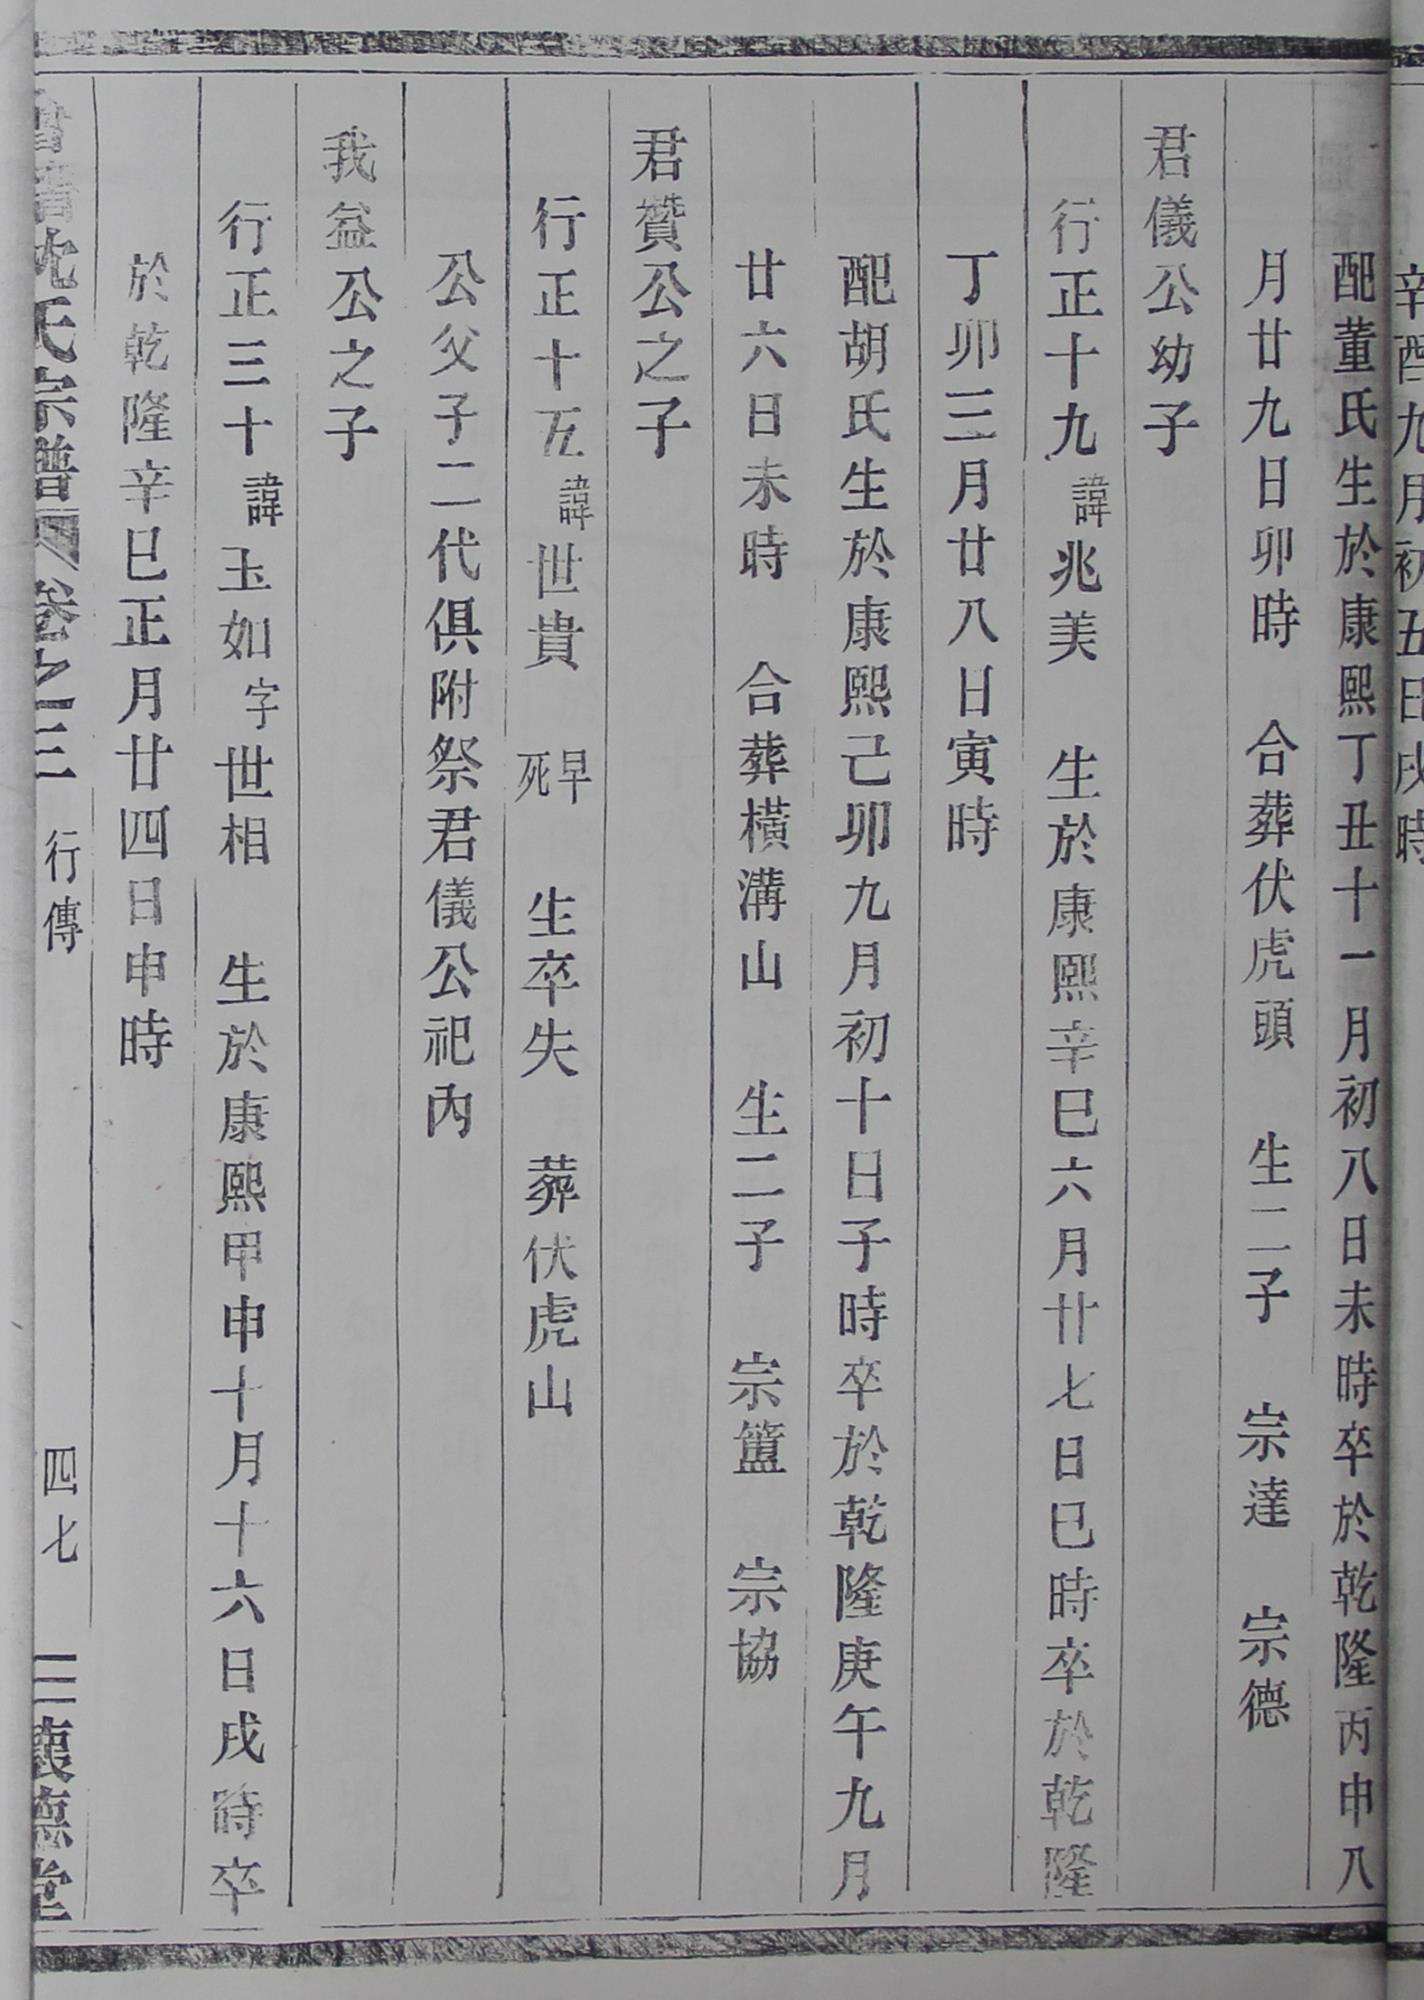 辛酉九月初五日戌時
配董氏生於康熙丁丑十一月初八日未時卒於乾隆丙申八
月廿九日卯時　合葬伏虎頭　生二子　宗達　宗德
君儀公幼子
行正十九諱兆美　生於康熙辛巳六月廿七日巳時卒於乾隆
丁卯三月廿八日寅時
配胡氏生於康熙己卯九月初十日子時卒於乾隆庚午九月
廿六日未時　合葬橫溝山　生二子　宗簠　宗協
君贊公之子
行正十五諱世貴　早死　生卒失　葬伏虎山
公父子二代俱附祭君儀公祀內
我益公之子
行正三十諱玉如字世相　生於康熙甲申十月十六日戌時卒
於乾隆辛巳正月廿四日申時
沈氏宗譜　卷之三　行傳　四七　懷德堂